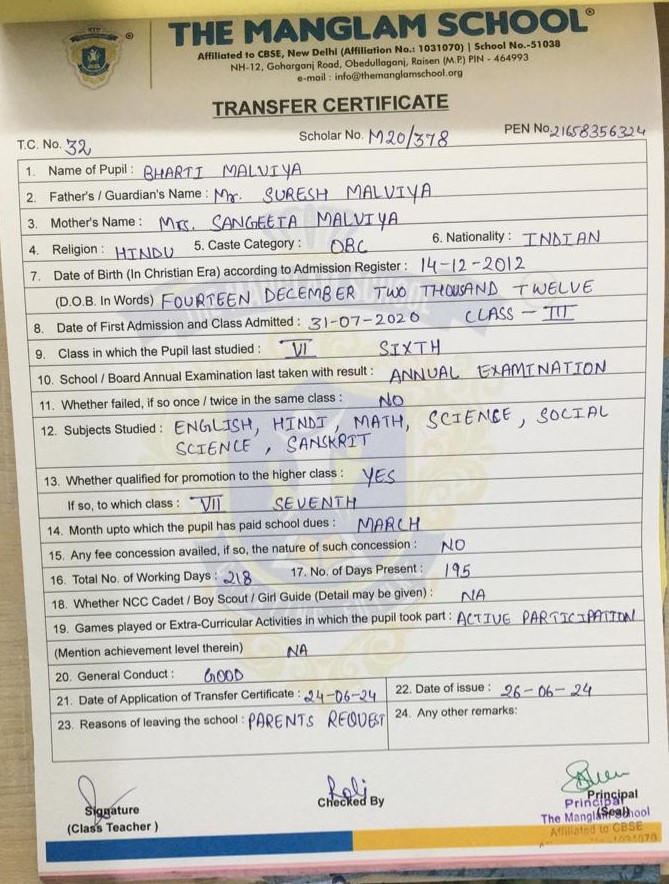 THE MANGLAM SCHOOL®
Affiliated to CBSE, New Delhi (Affiliation No.: 1031070) | School No.-51038
NH-12, Goharganj Road, Obedullaganj, Raisen (M.P.) PIN - 464993
e-mail : info@themanglamschool.org
TRANSFER CERTIFICATE
T.C. No. 32 Scholar No. M20/378 PEN No. 21658356324
1. Name of Pupil : BHARTI MALVIYA
2. Father's / Guardian's Name : Mr. SURESH MALVIYA
3. Mother's Name : Mrs. SANGEETA MALVIYA
4. Religion : HINDU 5. Caste Category : OBC 6. Nationality : INDIAN
7. Date of Birth (In Christian Era) according to Admission Register : 14-12-2012
(D.O.B. In Words) FOURTEEN DECEMBER TWO THOUSAND TWELVE
8. Date of First Admission and Class Admitted : 31-07-2020 CLASS - III
9. Class in which the Pupil last studied : VI SIXTH
10. School / Board Annual Examination last taken with result : ANNUAL EXAMINATION
11. Whether failed, if so once / twice in the same class : NO
12. Subjects Studied : ENGLISH, HINDI, MATH, SCIENCE, SOCIAL
SCIENCE, SANSKRIT
13. Whether qualified for promotion to the higher class : YES
If so, to which class : VII SEVENTH
14. Month upto which the pupil has paid school dues : MARCH
15. Any fee concession availed, if so, the nature of such concession : NO
16. Total No. of Working Days : 218 17. No. of Days Present : 195
18. Whether NCC Cadet / Boy Scout / Girl Guide (Detail may be given) : NA
19. Games played or Extra-Curricular Activities in which the pupil took part : ACTIVE PARTICIPATION
(Mention achievement level therein) NA
20. General Conduct : GOOD
21. Date of Application of Transfer Certificate : 24-06-24 22. Date of issue : 26-06-24
23. Reasons of leaving the school : PARENTS REQUEST 24. Any other remarks:
Signature Checked By Principal
(Class Teacher ) (Seal)
Principal
The Manglam School
Affiliated to CBSE